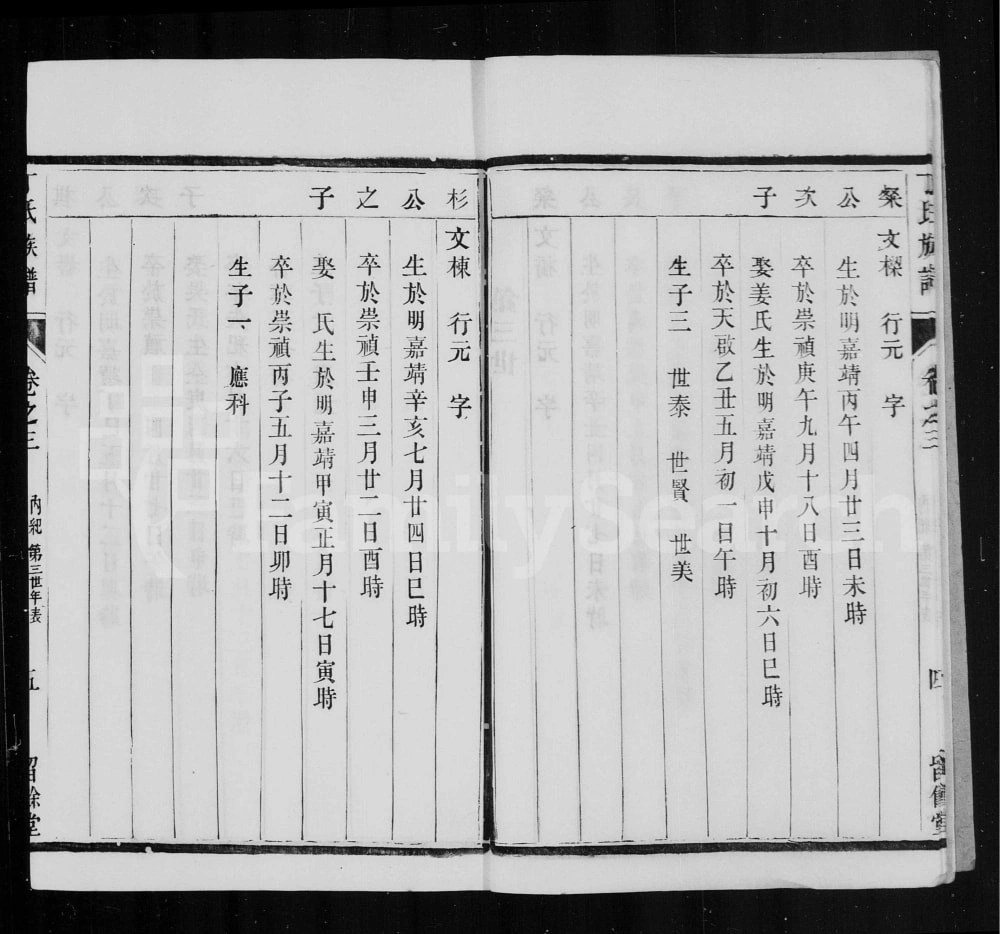 氏族譜
卷之三
四
留餘堂
粲公次子
文樑 行元 字
生於明嘉靖丙午四月廿三日未時
卒於崇禎庚午九月十八日酉時
娶姜氏生於明嘉靖戊申十月初六日巳時
卒於天啟乙丑五月初一日午時
生子三 世泰 世賢 世美
杉公之子
文棟 行元 字
生於明嘉靖辛亥七月廿四日巳時
卒於崇禎壬申三月廿一日酉時
娶 氏生於明嘉靖甲寅正月十七日寅時
卒於崇禎丙子五月十二日卯時
生子一 應科
氏族譜
卷之三
內紀 第三世年表
五
留餘堂
FamilySearch